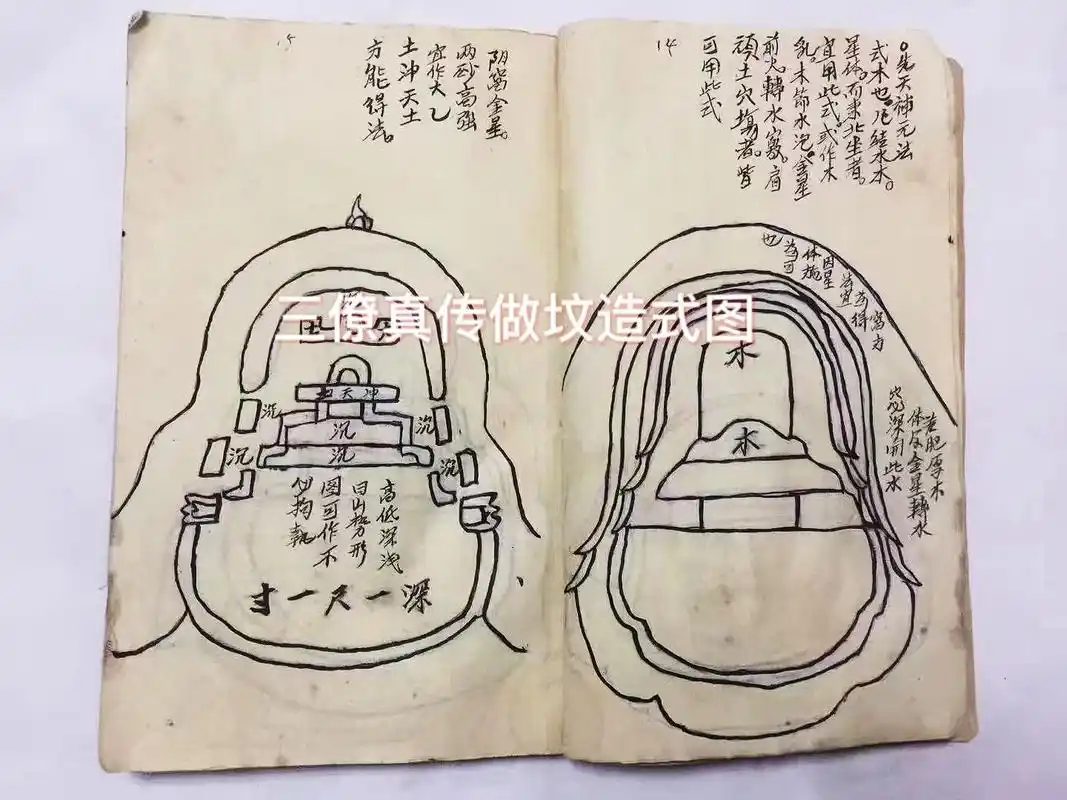 14
○先天補元法
式木也。凡結水木。
星体。而東北坐者。
宜用此式。或作木
乳。木節水泡。金星
前火轉水窩。肩
頑土穴塲者。皆
可用此式
为得窩为
法宜
因星
体施
为可
也
若肥厚木
体及金星轉水
窩深用此水
木
木
三僚真传做坟造式图
15
阴窩金星。
两砂高强
宜作太乙
土冲天土
方能得法。
土天冲
沉
沉
沉
沉
沉
沉
高低深浅
曰山势形
图可作不
必拘執
深一尺一寸